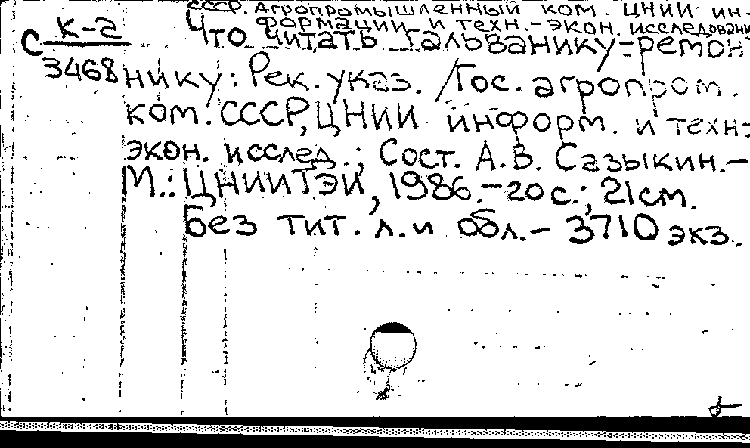 СССР. Агропромышленный ком. ЦНИИ ин-
формации и техн.-экон. исследовани
С К-2
3468
Что читать гальванику-ремон
нику: Рек. указ. /Гос. агропром.
ком. СССР, ЦНИИ информ. и техн.-
экон. исслед.; Сост. А.В. Сазыкин.-
М.: ЦНИИТЭИ, 1986.-20 с.; 21 см.
Без тит. л. и обл.- 3710 экз.